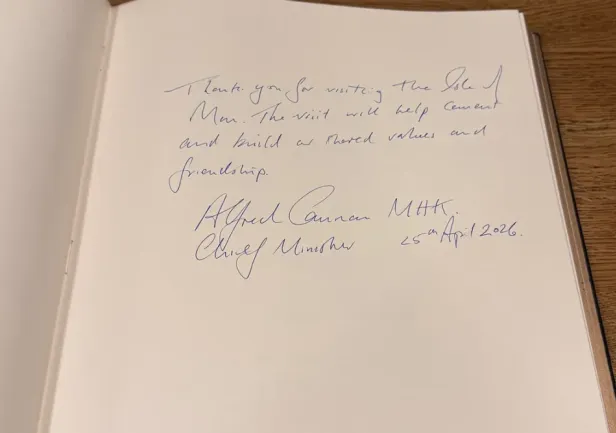 Thank you for visiting the Isle of
Man. The visit will help cement
and build our shared values and
friendship.
Alfred Cannan MHK.
Chief Minister 25th April 2026.